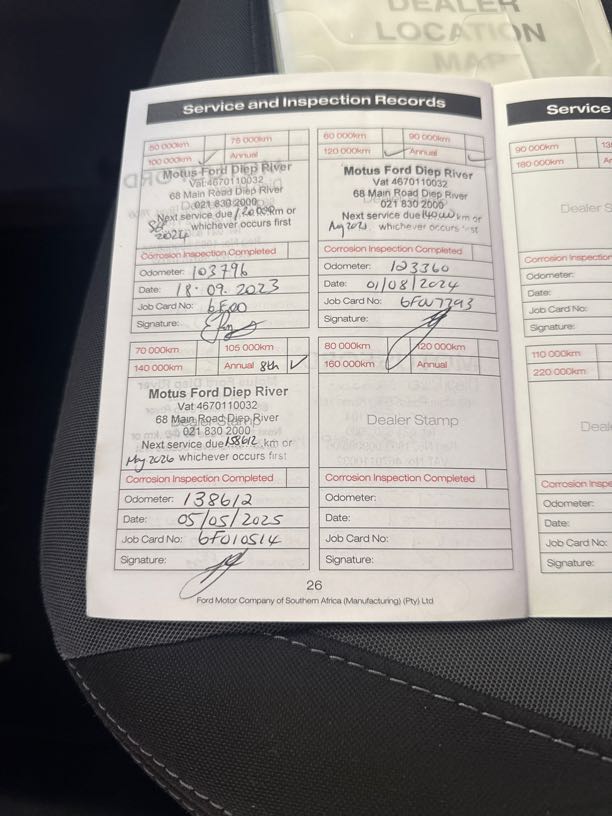 DEALER
LOCATION
MAP
Service and Inspection Records
50 000km 75 000km
100 000km ✓ Annual
Motus Ford Diep River
Vat 4670110032
68 Main Road Diep River
021 830 2000
Next service due 120000km or
Sep 2024 whichever occurs first
Corrosion Inspection Completed
Odometer: 103796
Date: 18.09.2023
Job Card No:
Signature:
60 000km 90 000km
120 000km ✓ Annual ✓
Motus Ford Diep River
Vat 4670110032
68 Main Road Diep River
021 830 2000
Next service due 140000 km or
whichever occurs first
Corrosion Inspection Completed
Odometer: 123360
Date: 01/08/2024
Job Card No: 6F007793
Signature:
70 000km 105 000km
140 000km Annual 8th ✓
Motus Ford Diep River
Vat 4670110032
68 Main Road Diep River
021 830 2000
Next service due 158612 km or
May 2026 whichever occurs first
Corrosion Inspection Completed
Odometer: 138612
Date: 05/05/2025
Job Card No: 6F010514
Signature:
80 000km 120 000km
160 000km Annual
Dealer Stamp
Corrosion Inspection Completed
Odometer:
Date:
Job Card No:
Signature:
26
Ford Motor Company of Southern Africa (Manufacturing) (Pty) Ltd
Service
90 000km
180 000km
Dealer S
Corrosion Inspection
Odometer:
Date:
Job Card No:
Signature:
110 000km
220 000km
Deale
Corrosion Inspe
Odometer:
Date:
Job Card No:
Signature: